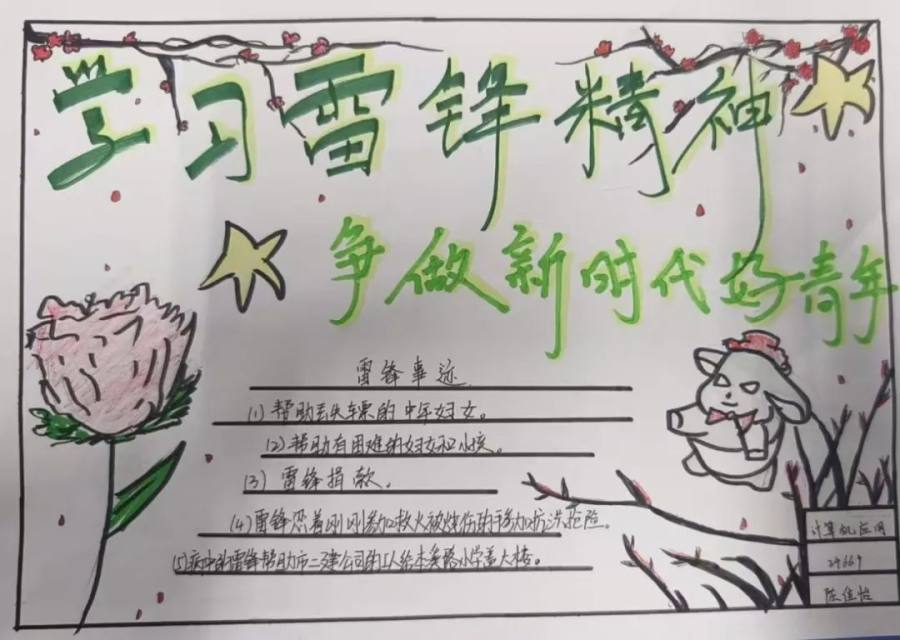 学习雷锋精神
争做新时代好青年
雷锋事迹
(1)帮助丢失车票的中年妇女。
(2)帮助有困难的妇女和小孩。
(3)雷锋捐款。
(4)雷锋带着刚刚参加救火被烧伤的手参加抗洪抢险。
(5)病中的雷锋帮助市二建公司的工人给本溪路小学盖大楼。
计算机应用
24669
陈佳怡